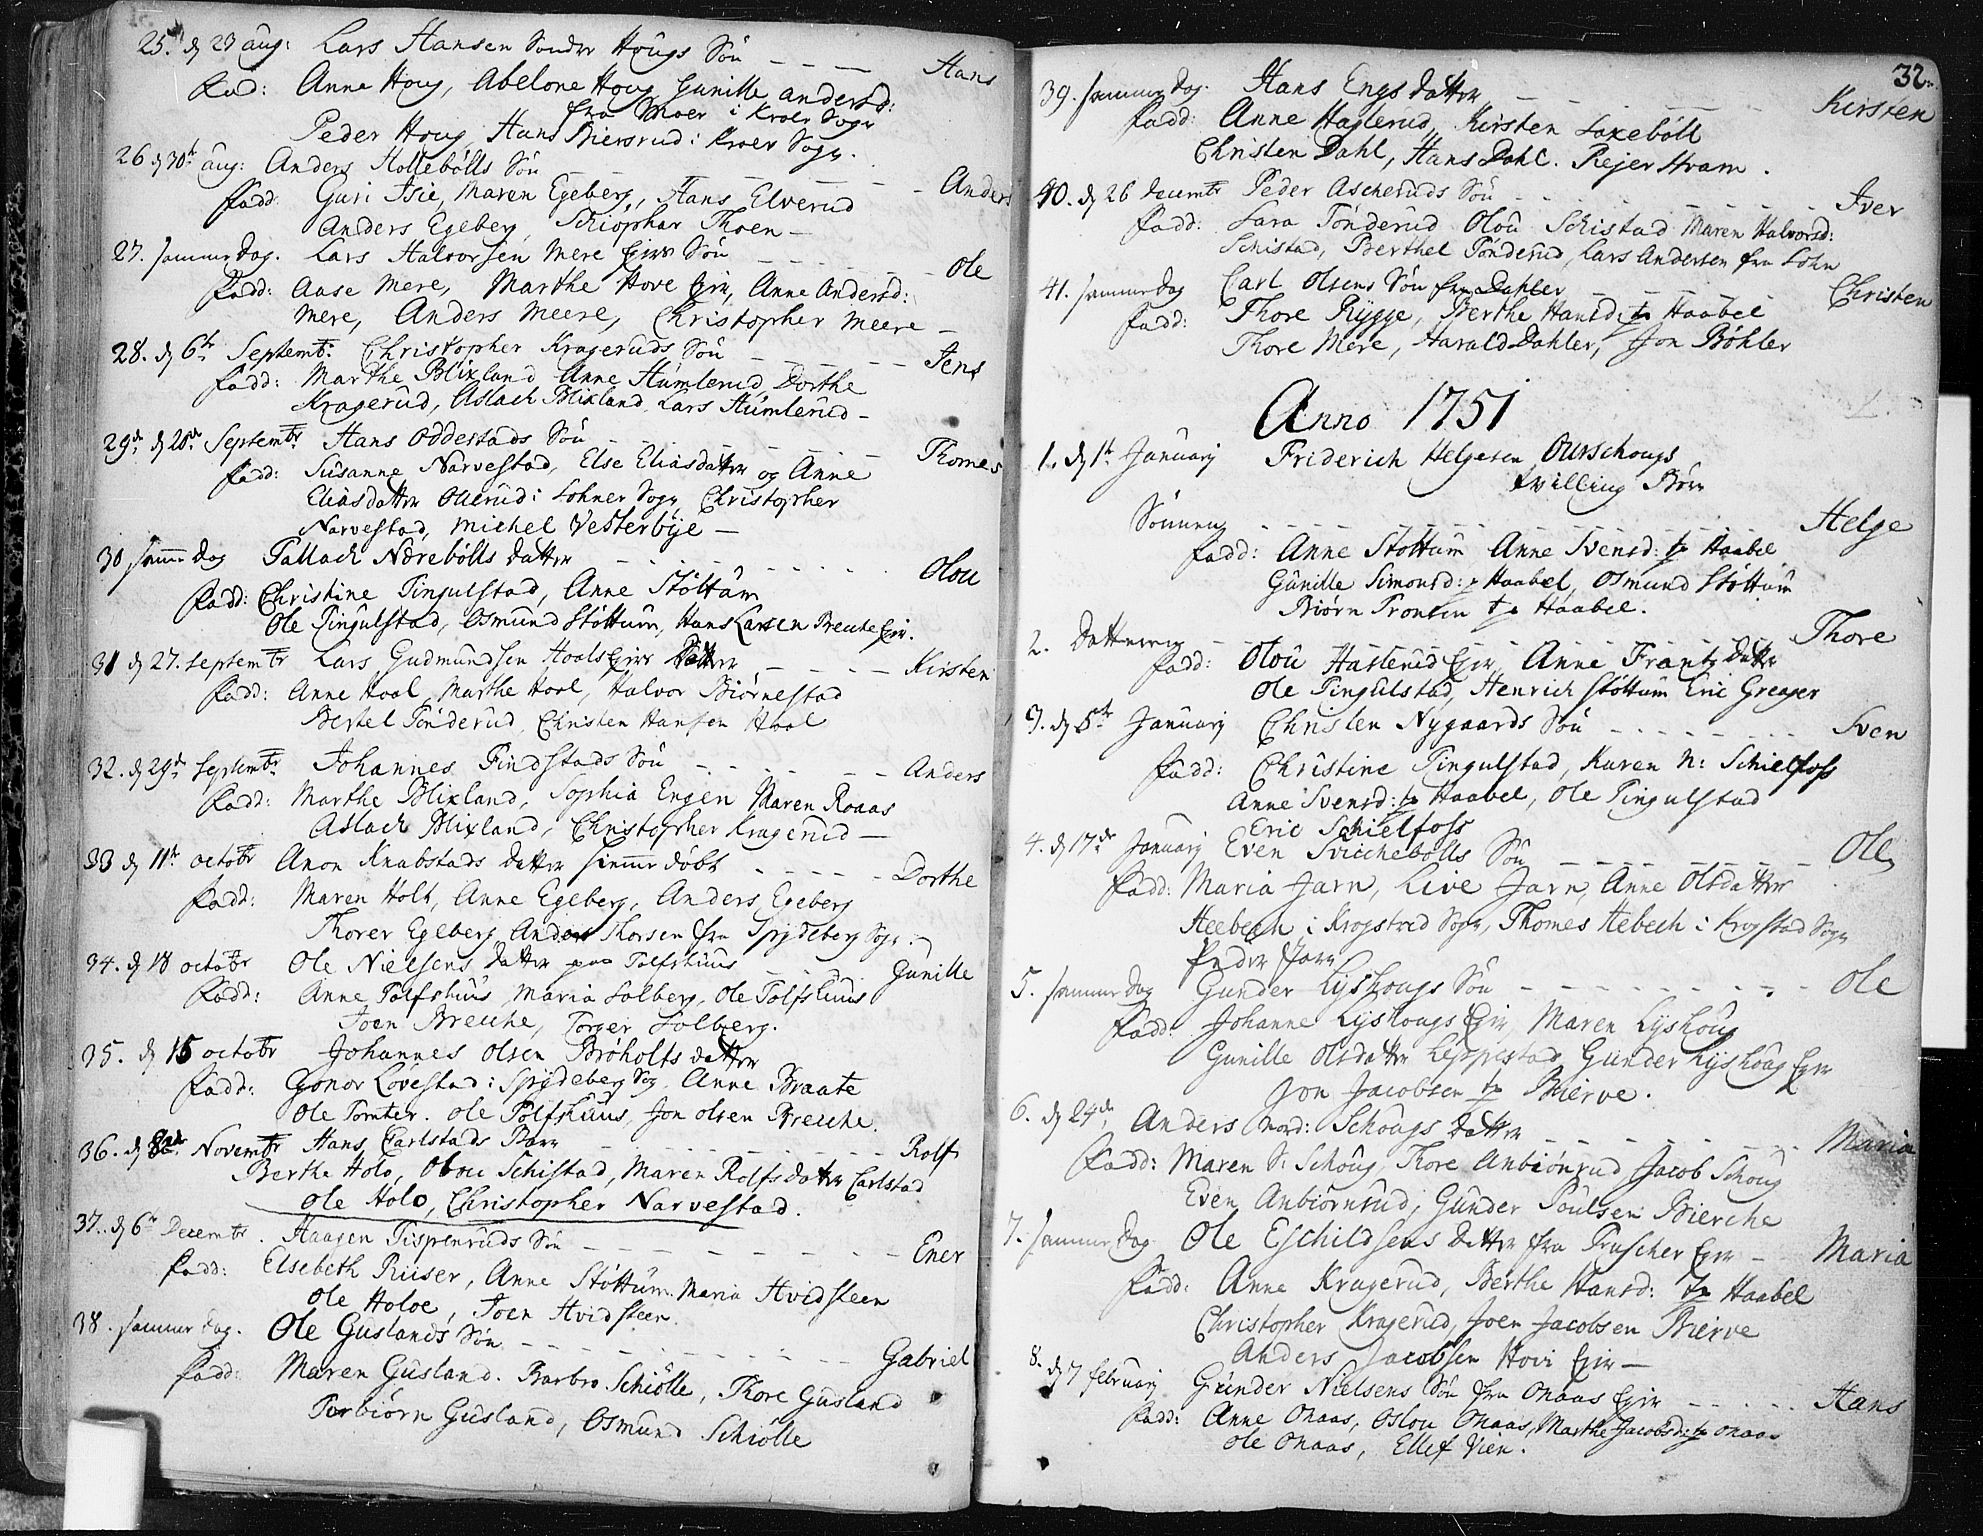 25. d 23 aug: Lars Hansen Sonder Hougs Søn - - - Hans
Fad: Anne Houg, Abelone Houg Gunille andersd:
fra Moer i Kroer Sogn
Peder Houg, Hans Biersrud i Kroer Sogn.
26 d 30te aug: Anders Hollebølls Søn - - - Anders
Fadd: Guri Isie, Maren Egeberg, Hans Elverud
Anders Egeberg, Schiophar Thoen -
27. samme Dag. Lars Halvorsen Mere Eier Søn - - - Ole
Fadd: Aase Mere, Marthe Hove Eier, Anne Andersd:
Mere, Anders Meere, Christopher Meere -
28. d 6te Septembr: Christopher Krageruds Søn - - - Jens
Fadd: Marthe Blixland Anne Humlerud, Dorthe
Kragerud, Aslach Blixland, Lars Humlerud -
29de d 20de Septembr Hans Oddestads Søn - - - Thomes
Fadd: Susanne Narvestad, Else Eliasdatter og Anne
Eliasdatter Ollerud i Sohner Sogn, Christopher
Narvestad, Michel Vesterbye -
30 samme Dag Tallach Nærebølls datter - - - Olou
Fadd: Christine Tingulstad, Anne Støttum
Ole Tingulstad, Osmund Støttum, Hans Larsen Breche Eier.
31 d 27. Septembr Lars Gudmundsen Hoels Eier Datter - - - Kirsten
Fadd: Anne Hoel, Marthe Hoel, Halvor Biørnestad
Bertel Tønderud, Christen Hansen Hoel
32. d 29de Septembr Johannes Findstads Søn - - - Anders
Fadd: Marthe Blixland, Sophia Engen Maren Roaas
Aslach Blixland, Christopher Kragerud -
33 d 11te octobr Anon Knabstads datter hiemme døbt - - - Dorthe
Fadd: Maren Holt, Anne Egeberg, Anders Egeberg
Thorer Egeberg Anders Thorsen fra Spydeberg Sogn.
34. d 18 octobr Ole Nielsens datter paa Tolfshuus - - - Gunille
Fadd: Anne Tolfshuus, Maria Solberg, Ole Tolfshuus
Joen Breche, Torger Solberg.
35. d 15 octobr Johannes Olsen Brøholts datter
Fadd: Gonor Løvestad i Spydeberg Sog. Anne Braate
Ole Tomter. Ole Tolfshuus, Jon Olsen Breche.
36. d 8de Novembr Hans Carlstads Barn - - - Rolf
Berthe Holo, Olou Schistad, Maren Rolfsdatter Carlstad
Ole Holo, Christopher Narvestad.
37. d 6te Decembr. Haagen Tispenruds Søn - - - Ener
Fadd: Elsebeth Riiser, Anne Støttum Maria Hvidsteen
Ole Holoe, Joen Hvidsteen.
38. samme Dag. Ole Guslands Søn - - - Gabriel
Fadd: Maren Gusland. Barbro Schiølle, Thore Gusland
Torbiørn Gusland, Osmund Schiølle
32.
39. samme Dag. Hans Engs datter - - - Kirsten
Fadd: Anne Haglerud, Kirsten Loxebøll
Christen Dahl, Hans Dahl. Rejer Hvam.
40. d 26 Decembr Peder Ascheruds Søn - - - Iver
Fadd: Sara Tønderud Olou Schistad Maren Halvorsd:
Schistad, Berthel Tønderud, Lars Andersen fra Sohn
41. samme Dag Carl Olsens Søn fra Dahler - - - Christen
Fadd: Thore Rygge, Berthe Hansd: tp Haabel
Thore Mere, Harald Dahler, Jon Bøhler
Anno 1751
1. d 1te January Friderich Helgesen Ourschougs
tvilling Børn
Sønnen - - - Helge
Fadd: Anne Støttum Anne Svensd: tp Haabel
Gunille Simonsd: p Haabel, Osmund Støttum
Biørn Tronsen tp Haabel.
2. Datteren - - - Thore
Fadd: Olou Haslerud Eier, Anne Frantzdatter
Ole Tingulstad, Henrich Støttum Eric Greager
3. d 5te January Christen Nygaards Søn - - - Sven
Fadd: Christine Tingulstad, Karen N: Schielfoss
Anne Svensd: tp Haabel, Ole Tingulstad
Eric Schielfoss
4. d 17de January Even Svicchebølls Søn - - - Ole
Fadd: Maria Jarn, Live Jarn, Anne Olsdatter
Heebech i Krogstad Sogn, Thomes Hebech i Krogstad Sogn
Peder Jarn
5. samme Dag Gunder Lyshougs Søn - - - Ole
Fadd: Johanne Lyshougs Eier Maren Lyshoug
Gunille Olsdatter Leppestad, Gunder Lyshoug Eier
Jon Jacobsen tp Bierve.
6. d 24de Anders Nord: Schougs datter - - - Maria
Fadd: Maren S: Schoug, Thore Anbiønrud Jacob Schoug
Even Anbiørnrud, Gunder Poulsen Bierche
7. samme Dag Ole Eschildsens datter fra Pruscher Eier - Maria
Fadd: Anne Kragerud, Berthe Hansd: tp Haabel
Christopher Kragerud, Joen Jacobsen Bierve
Anders Jacobsen Hovi Eier -
8. d 7 february Gunder Nielsens Søn fra Onaas Eier - - - Hans
Fadd: Anne Onaas, Oslou Onaas, Marthe Jacobsd: tp Onaas
Ole Onaas, Ellef Vien.